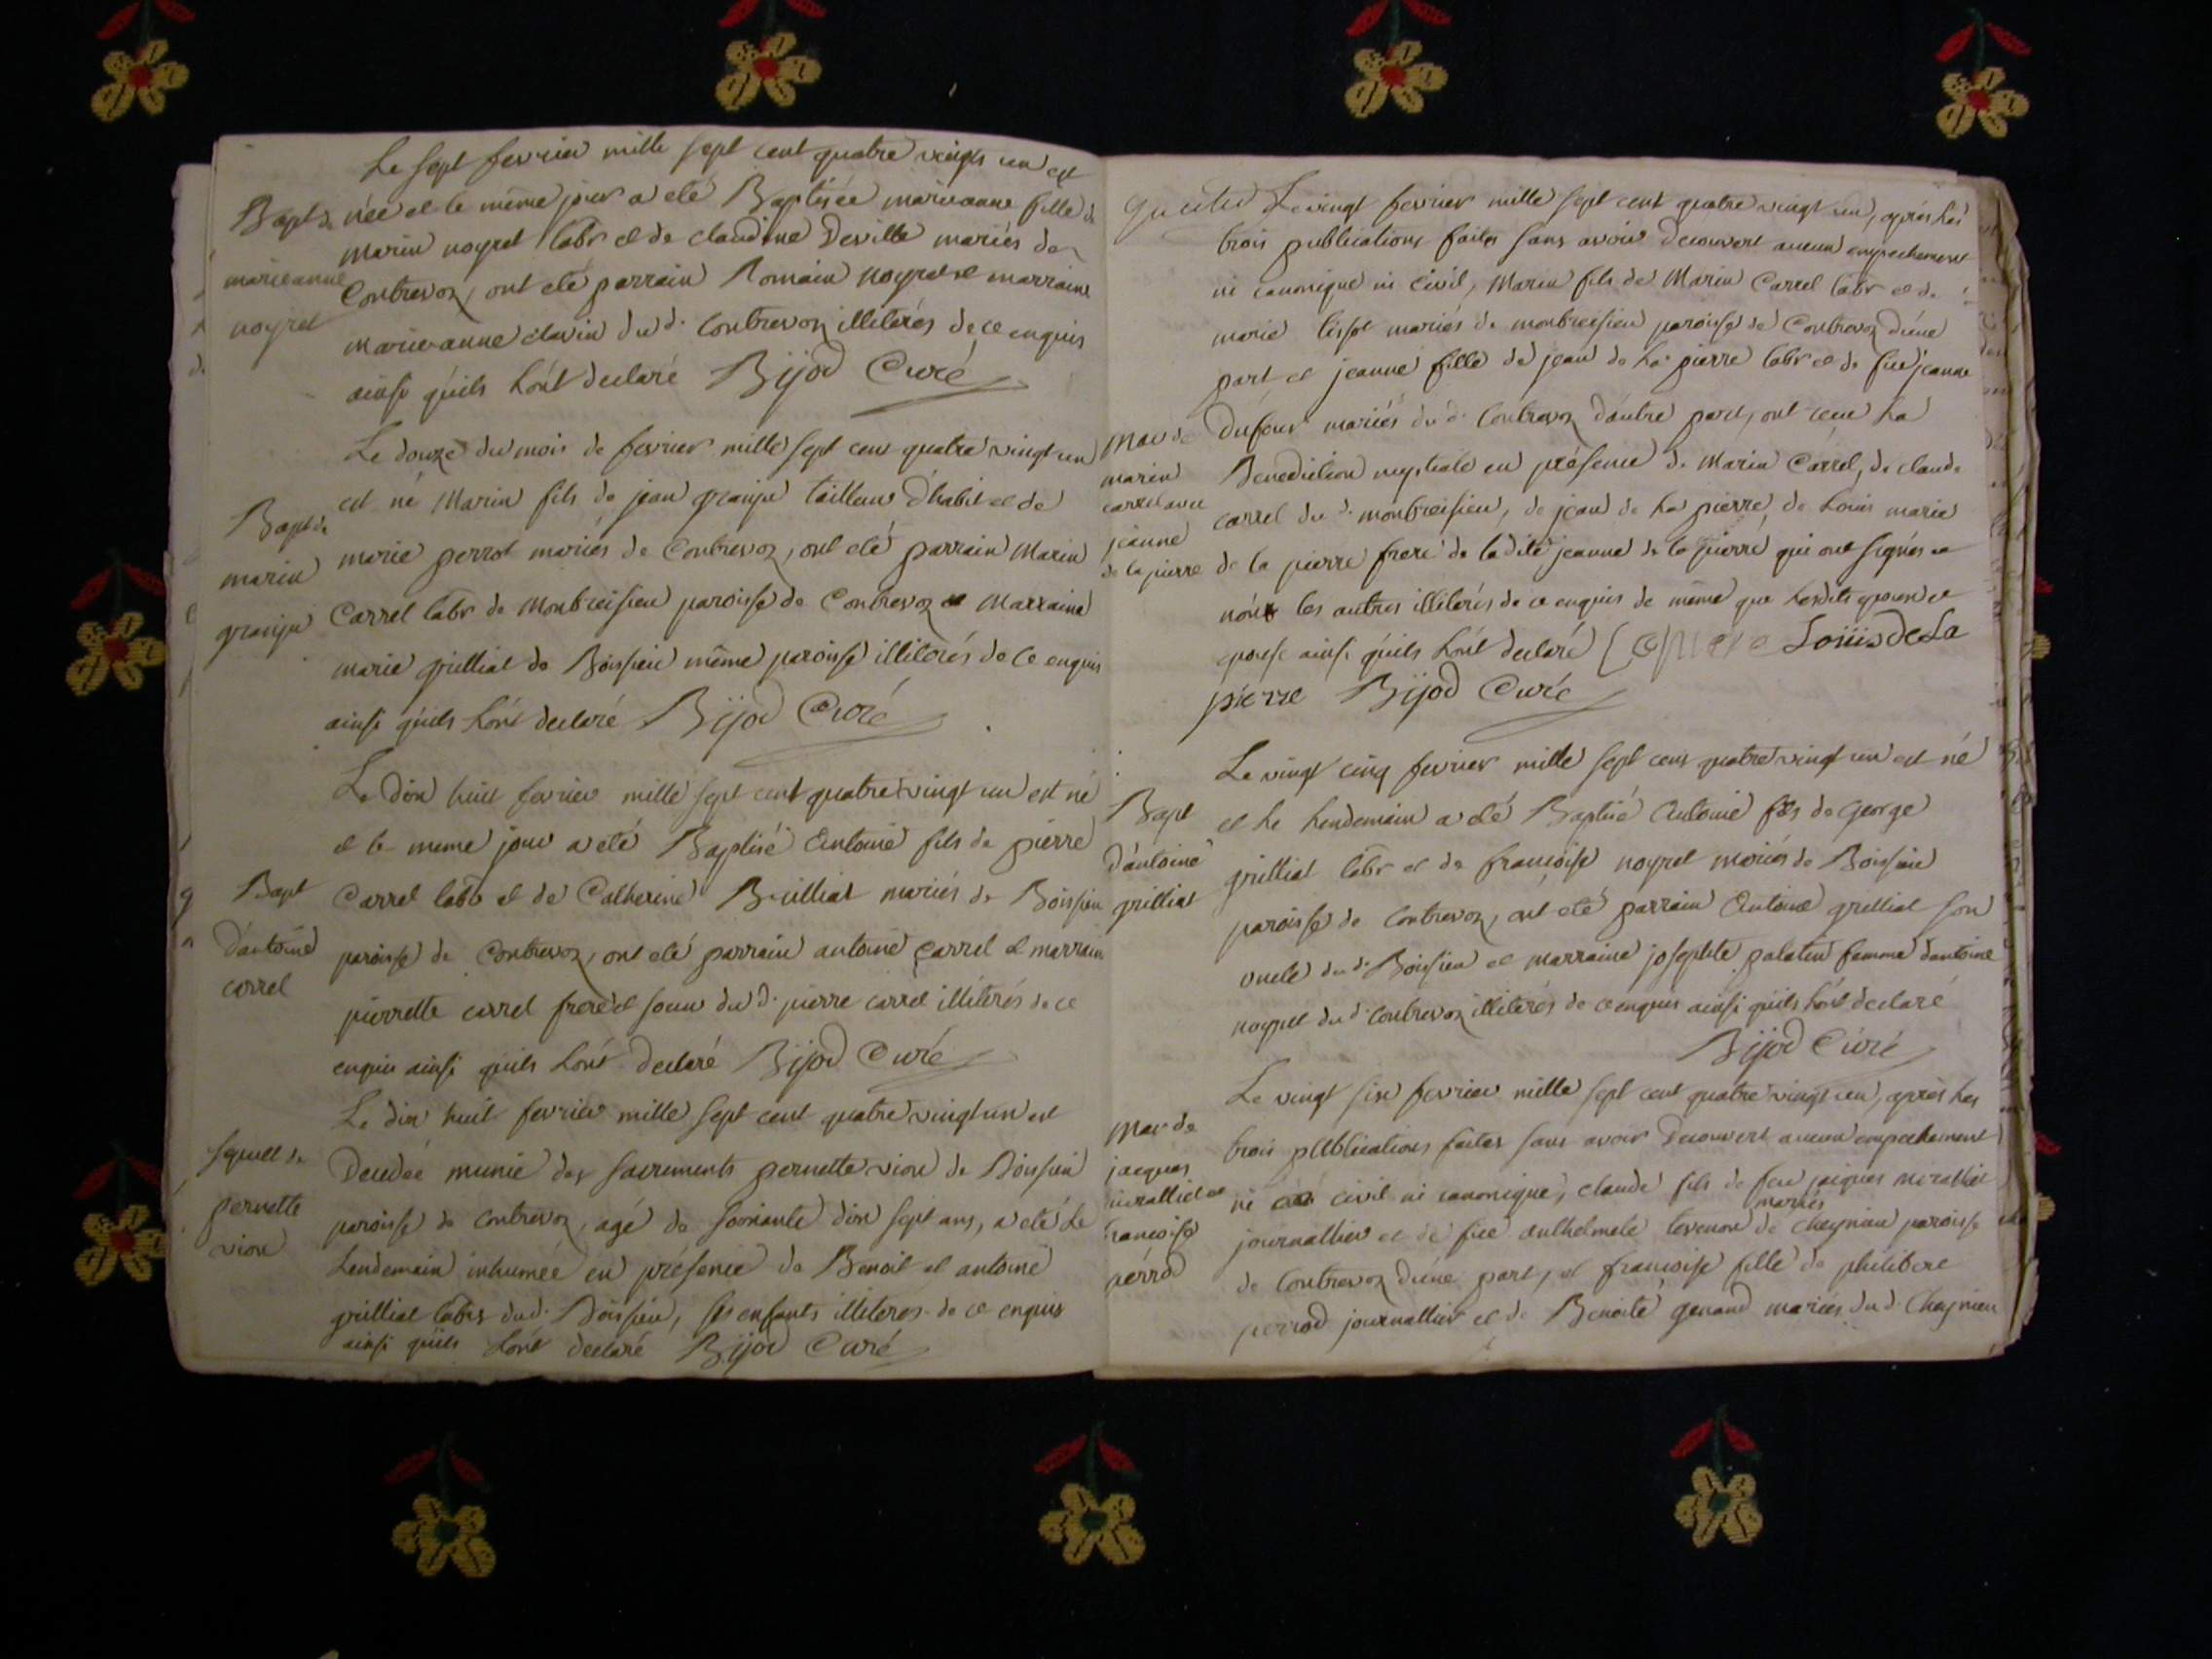 Le sept fevrier mille sept cent quatre vingts un est
Bapt de née et le même jour a eté Baptisée marieanne fille de
marin noyret labr et de claudine Deville mariés de
marieanne Contrevoz, ont eté parrain Romain noyret et marraine
noyret marieanne clavin du d. Contrevoz illiterés de ce enquis
ainsi quils hont declaré Bijod Curé
Le douze du mois de fevrier mille sept cent quatre vingt un
est né Marin fils de jean granju tailleur d'habit et de
Bapt de marie perrot mariés de Contrevoz, ont eté parrain Marin
marin
granju Carrel labr de Montbreisieu paroisse de Contrevoz et Marraine
marie grilliat de Boissieu même paroisse illiterés de ce enquis
ainsi quils hont declaré Bijod Curé
Le dix huit fevrier mille sept cent quatre vingt un est né
et le meme jour a eté Baptisé Antoine fils de pierre
Bapt Carrel labr et de Catherine Brilliat mariés de Boissieu
d'antoine paroisse de Contrevoz, ont eté parrain antoine Carrel et marraine
carrel
pierrette carrel frere et soeur du d. pierre carrel illiterés de ce
enquis ainsi quils hont declaré Bijod Curé
Le dix huit fevrier mille sept cent quatre vingt un est
sepult de Decedée munie des sacrements pernette vion de Boissieu
pernette paroisse de Contrevoz, agé de soixante dix sept ans, a eté le
vion
Lendemain inhumée en présence de Benoit et antoine
grilliat labrs du d. Boissieu, ses enfants illiterés de ce enquis
ainsi quils hont declaré Bijod Curé
Le vingt fevrier mille sept cent quatre vingt un, après les
trois publications faites sans avoir decouvert aucun empechement
ni canonique ni civil, Marin fils de Marin Carrel labr et de
marie tissot mariés de montbreisieu paroisse de Contrevoz d'une
part et jeanne fille de jean de la pierre labr et de fue jeanne
mar de Dufour mariés du d. Contrevoz d'autre part, ont reçu la
marin Benediction nuptiale en présence de Marin Carrel, de claude
carrel avec carrel du d. montbreisieu, de jean de la pierre, de Louis marie
jeanne
de la pierre de la pierre frere de ladite jeanne de la pierre qui ont signés et
non les autres illiterés de ce enquis de même que lesdits epoux et
epouse ainsi quils hont declaré Loüis De La
pierre Bijod Curé
Le vingt cinq fevrier mille sept cent quatre vingt un est né
Bapt et le lendemain a eté Baptisé Antoine fils de george
d'antoine grilliat labr et de françoise noyret mariés de Boissieu
grilliat
paroisse de Contrevoz, ont eté parrain Antoine grilliat son
oncle du d. Boissieu et marraine josephte palatin femme d'antoine
noyret du d. Contrevoz illiterés de ce enquis ainsi quils hont declaré
Bijod Curé
Le vingt six fevrier mille sept cent quatre vingt un, après les
mar de trois publications faites sans avoir decouvert aucun empechement
jacques
miralliet et ni civil ni canonique, claude fils de feu jacques miralliet
mariés
françoise journallier et de fue anthelmete tevenon de Cheynieu paroisse
perrod de Contrevoz d'une part, et françoise fille de philibert
perrod journallier et de Benoite genand mariés du d. Cheynieu